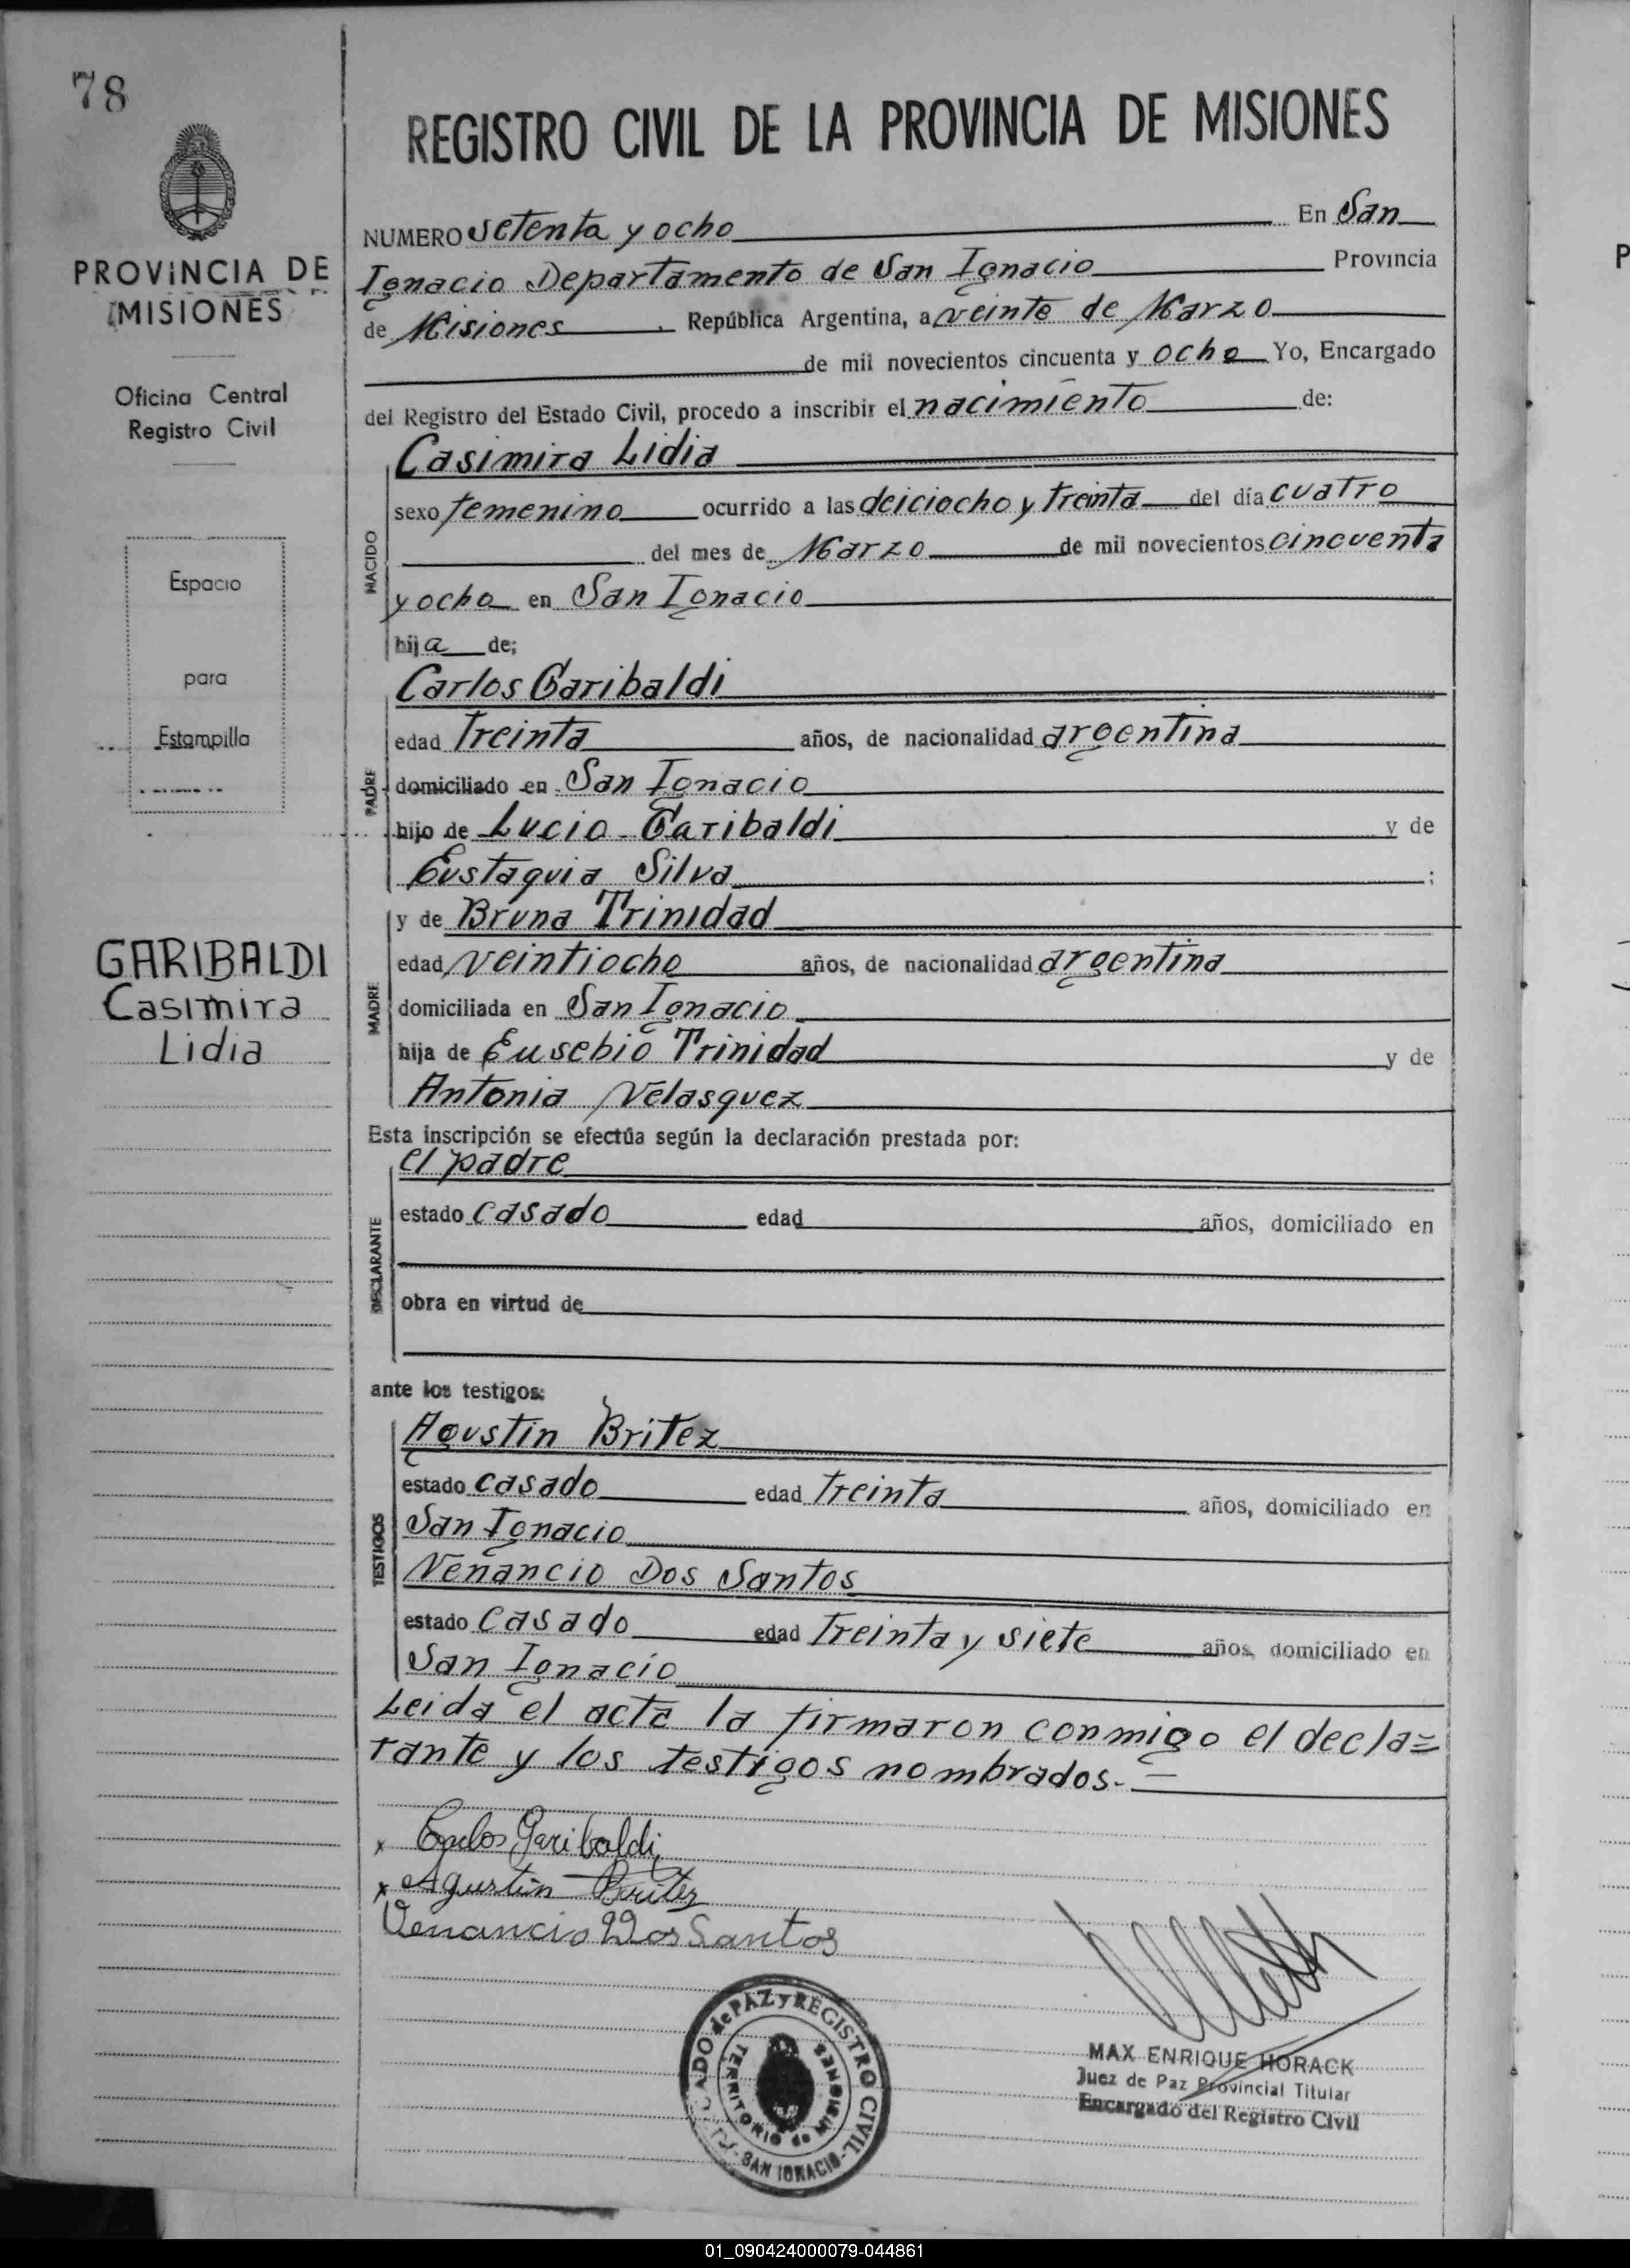 78
REGISTRO CIVIL DE LA PROVINCIA DE MISIONES
PROVINCIA DE
MISIONES
Oficina Central
Registro Civil
Espacio
para
Estampilla
GARIBALDI
Casimira
Lidia
NUMERO setenta y ocho En San
Ignacio Departamento de San Ignacio Provincia
de Misiones República Argentina, a veinte de Marzo
de mil novecientos cincuenta y ocho Yo, Encargado
del Registro del Estado Civil, procedo a inscribir el nacimiento de:
NACIDO
Casimira Lidia
sexo femenino ocurrido a las deiciocho y treinta del día cuatro
del mes de Marzo de mil novecientos cincuenta
y ocho en San Ignacio
hija de;
PADRE
Carlos Garibaldi
edad treinta años, de nacionalidad argentina
domiciliado en San Ignacio
hijo de Lucio Garibaldi y de
Eustaquia Silva ;
MADRE
y de Bruna Trinidad
edad veintiocho años, de nacionalidad argentina
domiciliada en San Ignacio
hija de Eusebio Trinidad y de
Antonia Velasquez
Esta inscripción se efectúa según la declaración prestada por:
DECLARANTE
el padre
estado casado edad años, domiciliado en
obra en virtud de
ante los testigos:
TESTIGOS
Agustin Britez
estado casado edad treinta años, domiciliado en
San Ignacio
Venancio Dos Santos
estado casado edad treinta y siete años, domiciliado en
San Ignacio
Leida el acta la firmaron conmigo el decla=
rante y los testigos nombrados.=
x Carlos Garibaldi
x Agustin Britez
Venancio Dos Santos
JUZGADO de PAZ y REGISTRO CIVIL
TERRITORIO de MISIONES
SAN IGNACIO
MAX ENRIQUE HORACK
Juez de Paz Provincial Titular
Encargado del Registro Civil
P
01_090424000079-044861